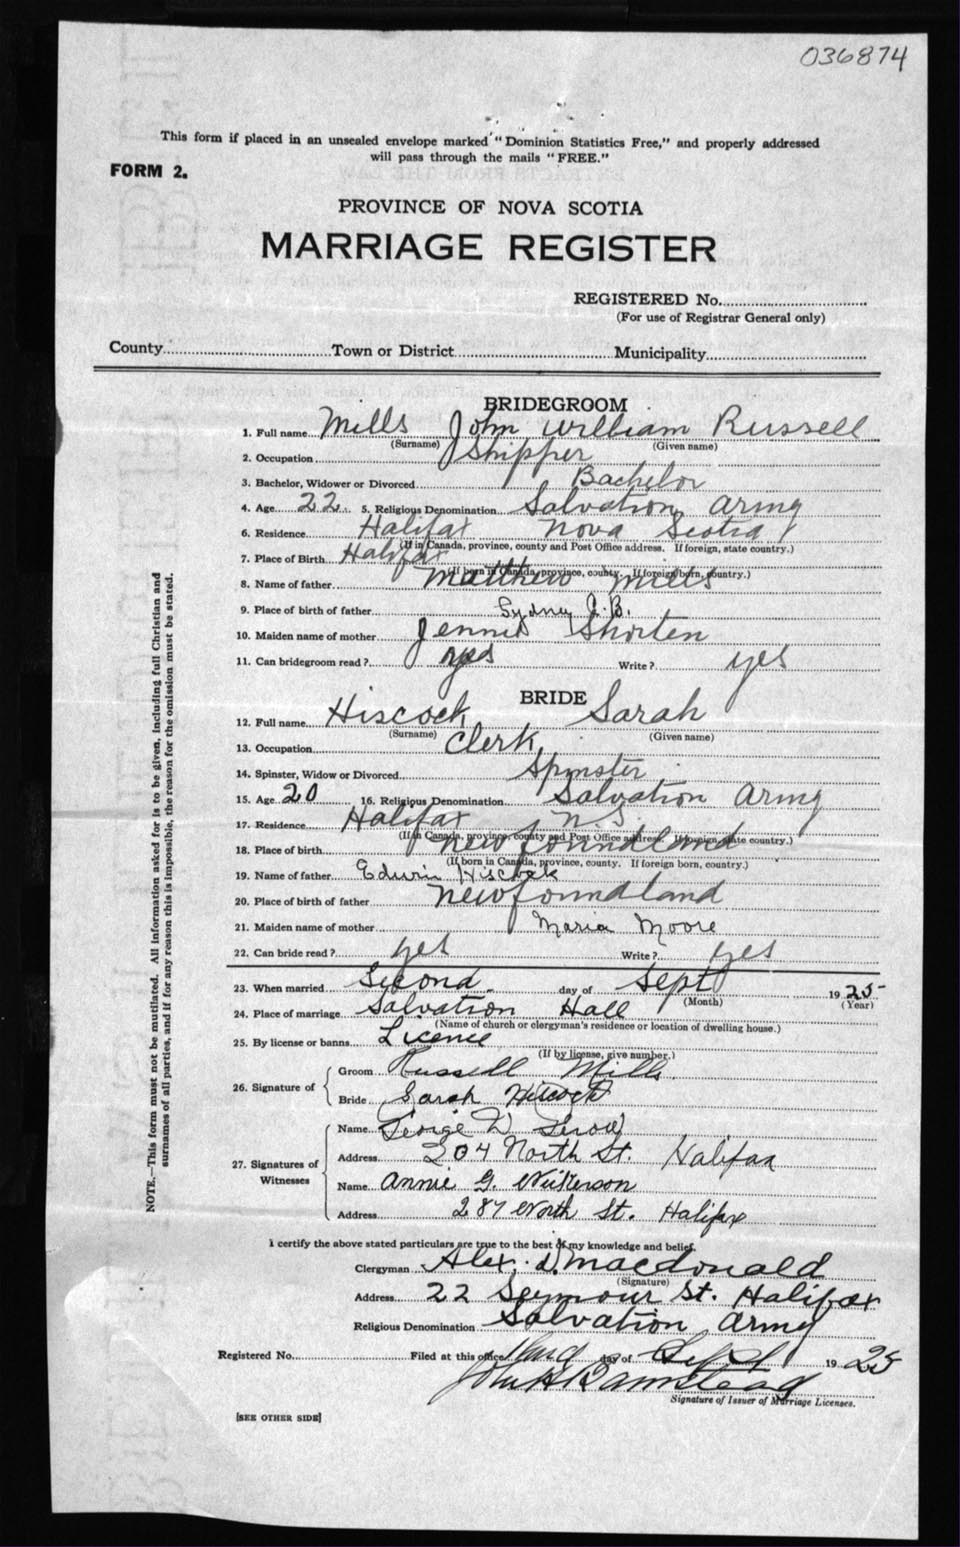 036874
This form if placed in an unsealed envelope marked "Dominion Statistics Free," and properly addressed
will pass through the mails "FREE."
FORM 2.
PROVINCE OF NOVA SCOTIA
MARRIAGE REGISTER
REGISTERED No.
(For use of Registrar General only)
County Town or District Municipality
BRIDEGROOM
1. Full name Mills John William Russell
(Surname) (Given name)
2. Occupation Shipper
3. Bachelor, Widower or Divorced Bachelor
4. Age 22 5. Religious Denomination Salvation Army
6. Residence Halifax Nova Scotia
(If in Canada, province, county and Post Office address. If foreign, state country.)
7. Place of Birth Halifax
(If born in Canada, province, county. If foreign born, country.)
8. Name of father Matthew Mills
9. Place of birth of father Sydney C.B.
10. Maiden name of mother Jennie Shorten
11. Can bridegroom read? yes Write? yes
BRIDE
12. Full name Hiscock Sarah
(Surname) (Given name)
13. Occupation Clerk
14. Spinster, Widow or Divorced Spinster
15. Age 20 16. Religious Denomination Salvation Army
17. Residence Halifax N.S.
(If in Canada, province, county and Post Office address. If foreign, state country.)
18. Place of birth Newfoundland
(If born in Canada, province, county. If foreign born, country.)
19. Name of father Edwin Hiscock
20. Place of birth of father Newfoundland
21. Maiden name of mother Maria Moore
22. Can bride read? yes Write? yes
23. When married Second day of Sept 1925
(Month) (Year)
24. Place of marriage Salvation Hall
(Name of church or clergyman's residence or location of dwelling house.)
25. By license or banns Licence
(If by license, give number.)
26. Signature of Groom Russell Mills
Bride Sarah Hiscock
27. Signatures of Witnesses Name George W
Address 304 North St. Halifax
Name Annie G. Wilkerson
Address 287 North St. Halifax
I certify the above stated particulars are true to the best of my knowledge and belief.
Clergyman Alex. D. Macdonald
(Signature)
Address 22 Seymour St. Halifax
Religious Denomination Salvation Army
Registered No. Filed at this office day of Sept 1925
John H Barnstead
Signature of Issuer of Marriage Licenses.
[SEE OTHER SIDE]
NOTE.—This form must not be mutilated. All information asked for is to be given, including full Christian and
surnames of all parties, and if for any reason this is impossible, the reason for the omission must be stated.